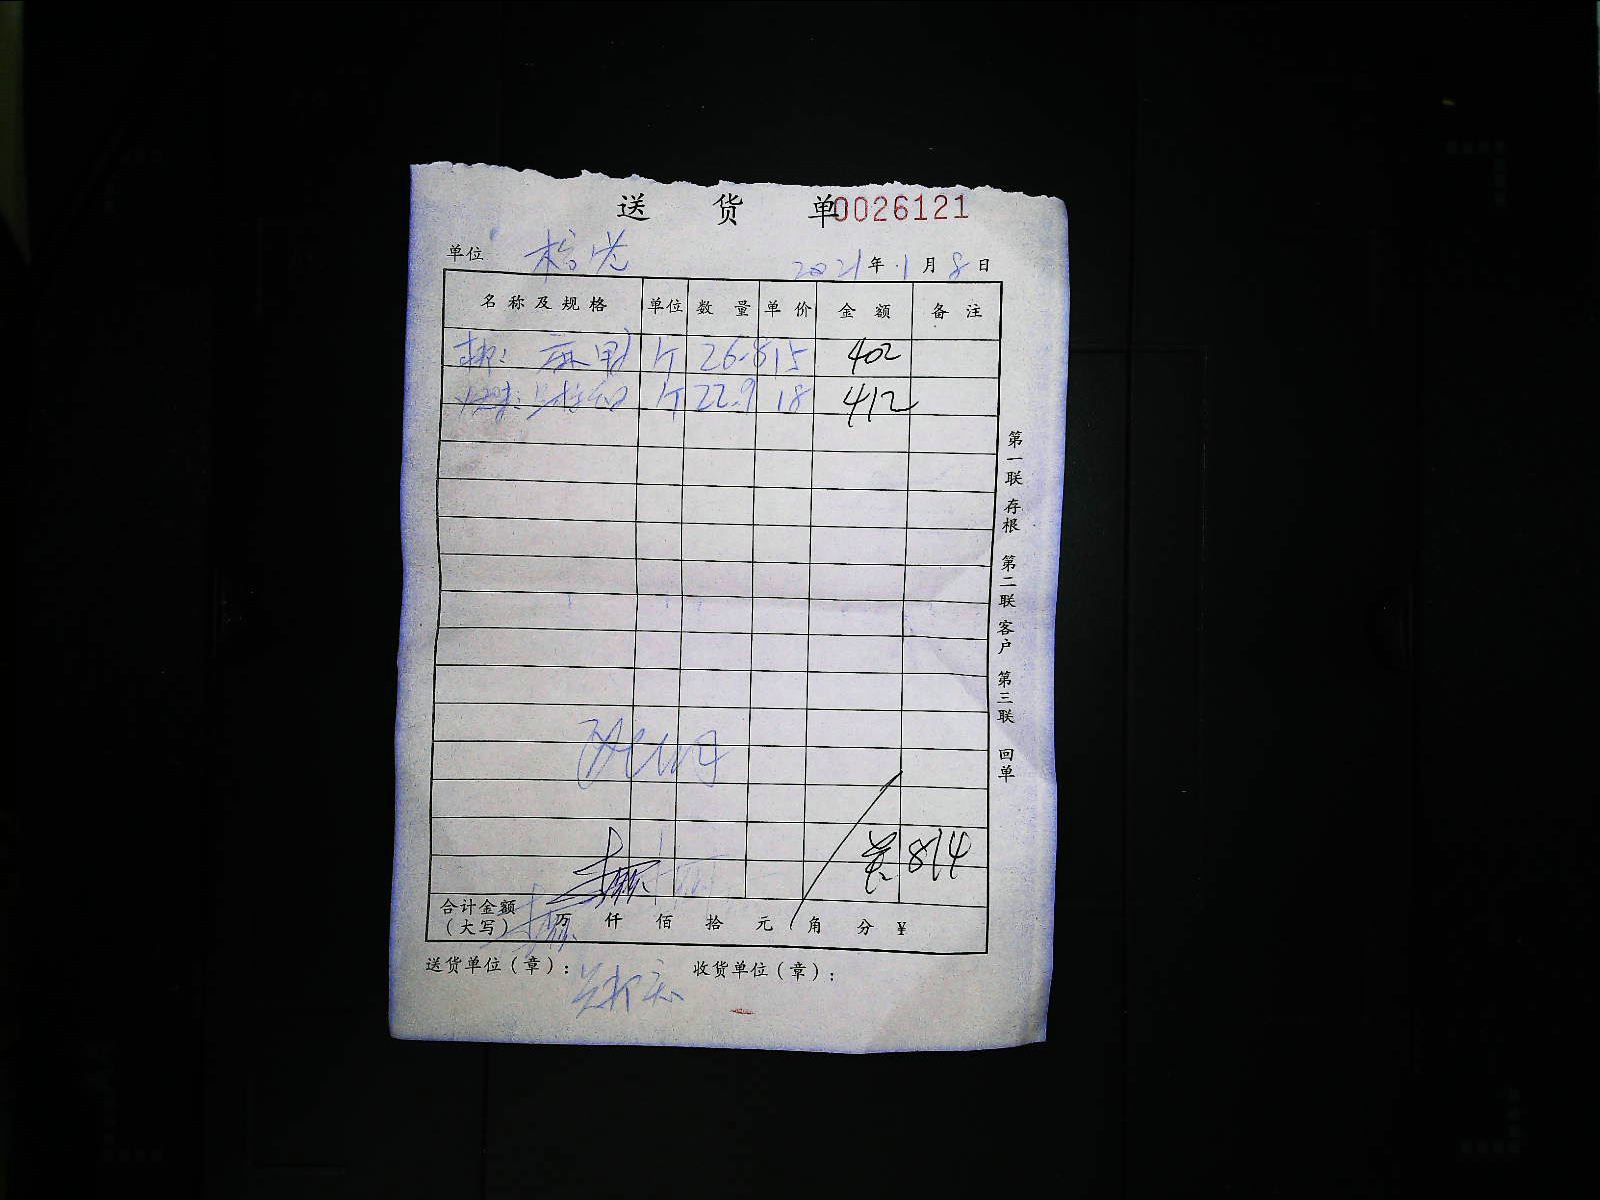 送货单 0026121
单位 2021年1月8日
名称及规格 单位 数量 单价 金额 备注
斤 26.8 15 402
斤 22.9 18 412
共 814
合计金额（大写） 万 仟 佰 拾 元 角 分 ¥
送货单位（章）： 收货单位（章）：
第一联 存根 第二联 客户 第三联 回单